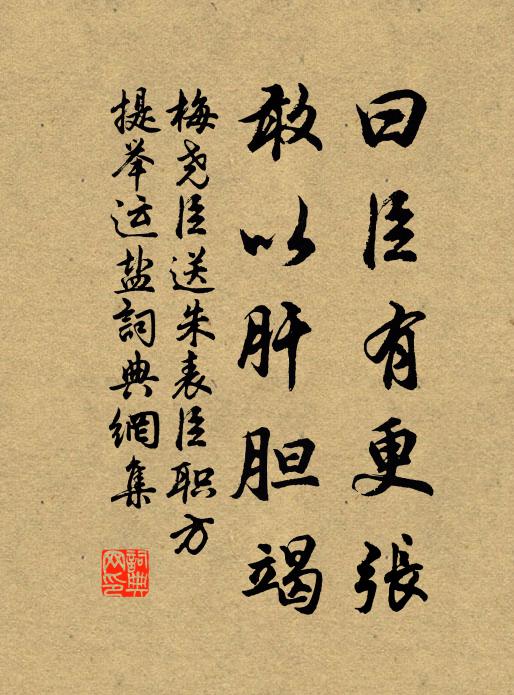 曰臣有更張
敢以肝胆竭
梅尧臣送朱表臣职方
提举运盐詞典網集
詞典
网印